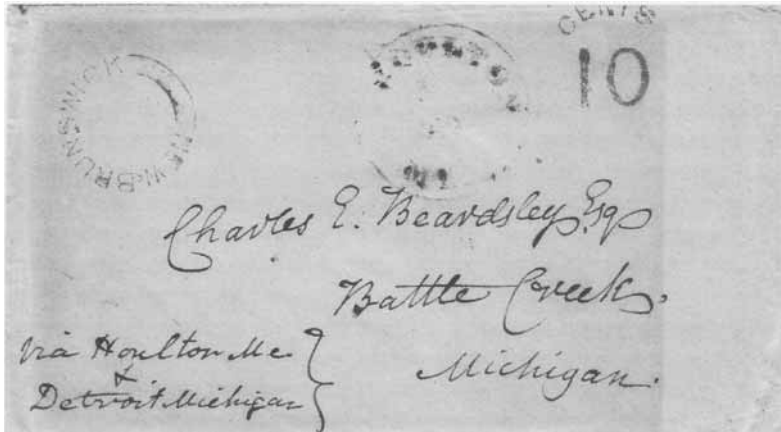 NEW-BRUNSWICK
HOULTON
CENTS
10
Charles E. Beardsley Esq
Battle Creek.
Michigan.
via Houlton Me.
&
Detroit Michigan